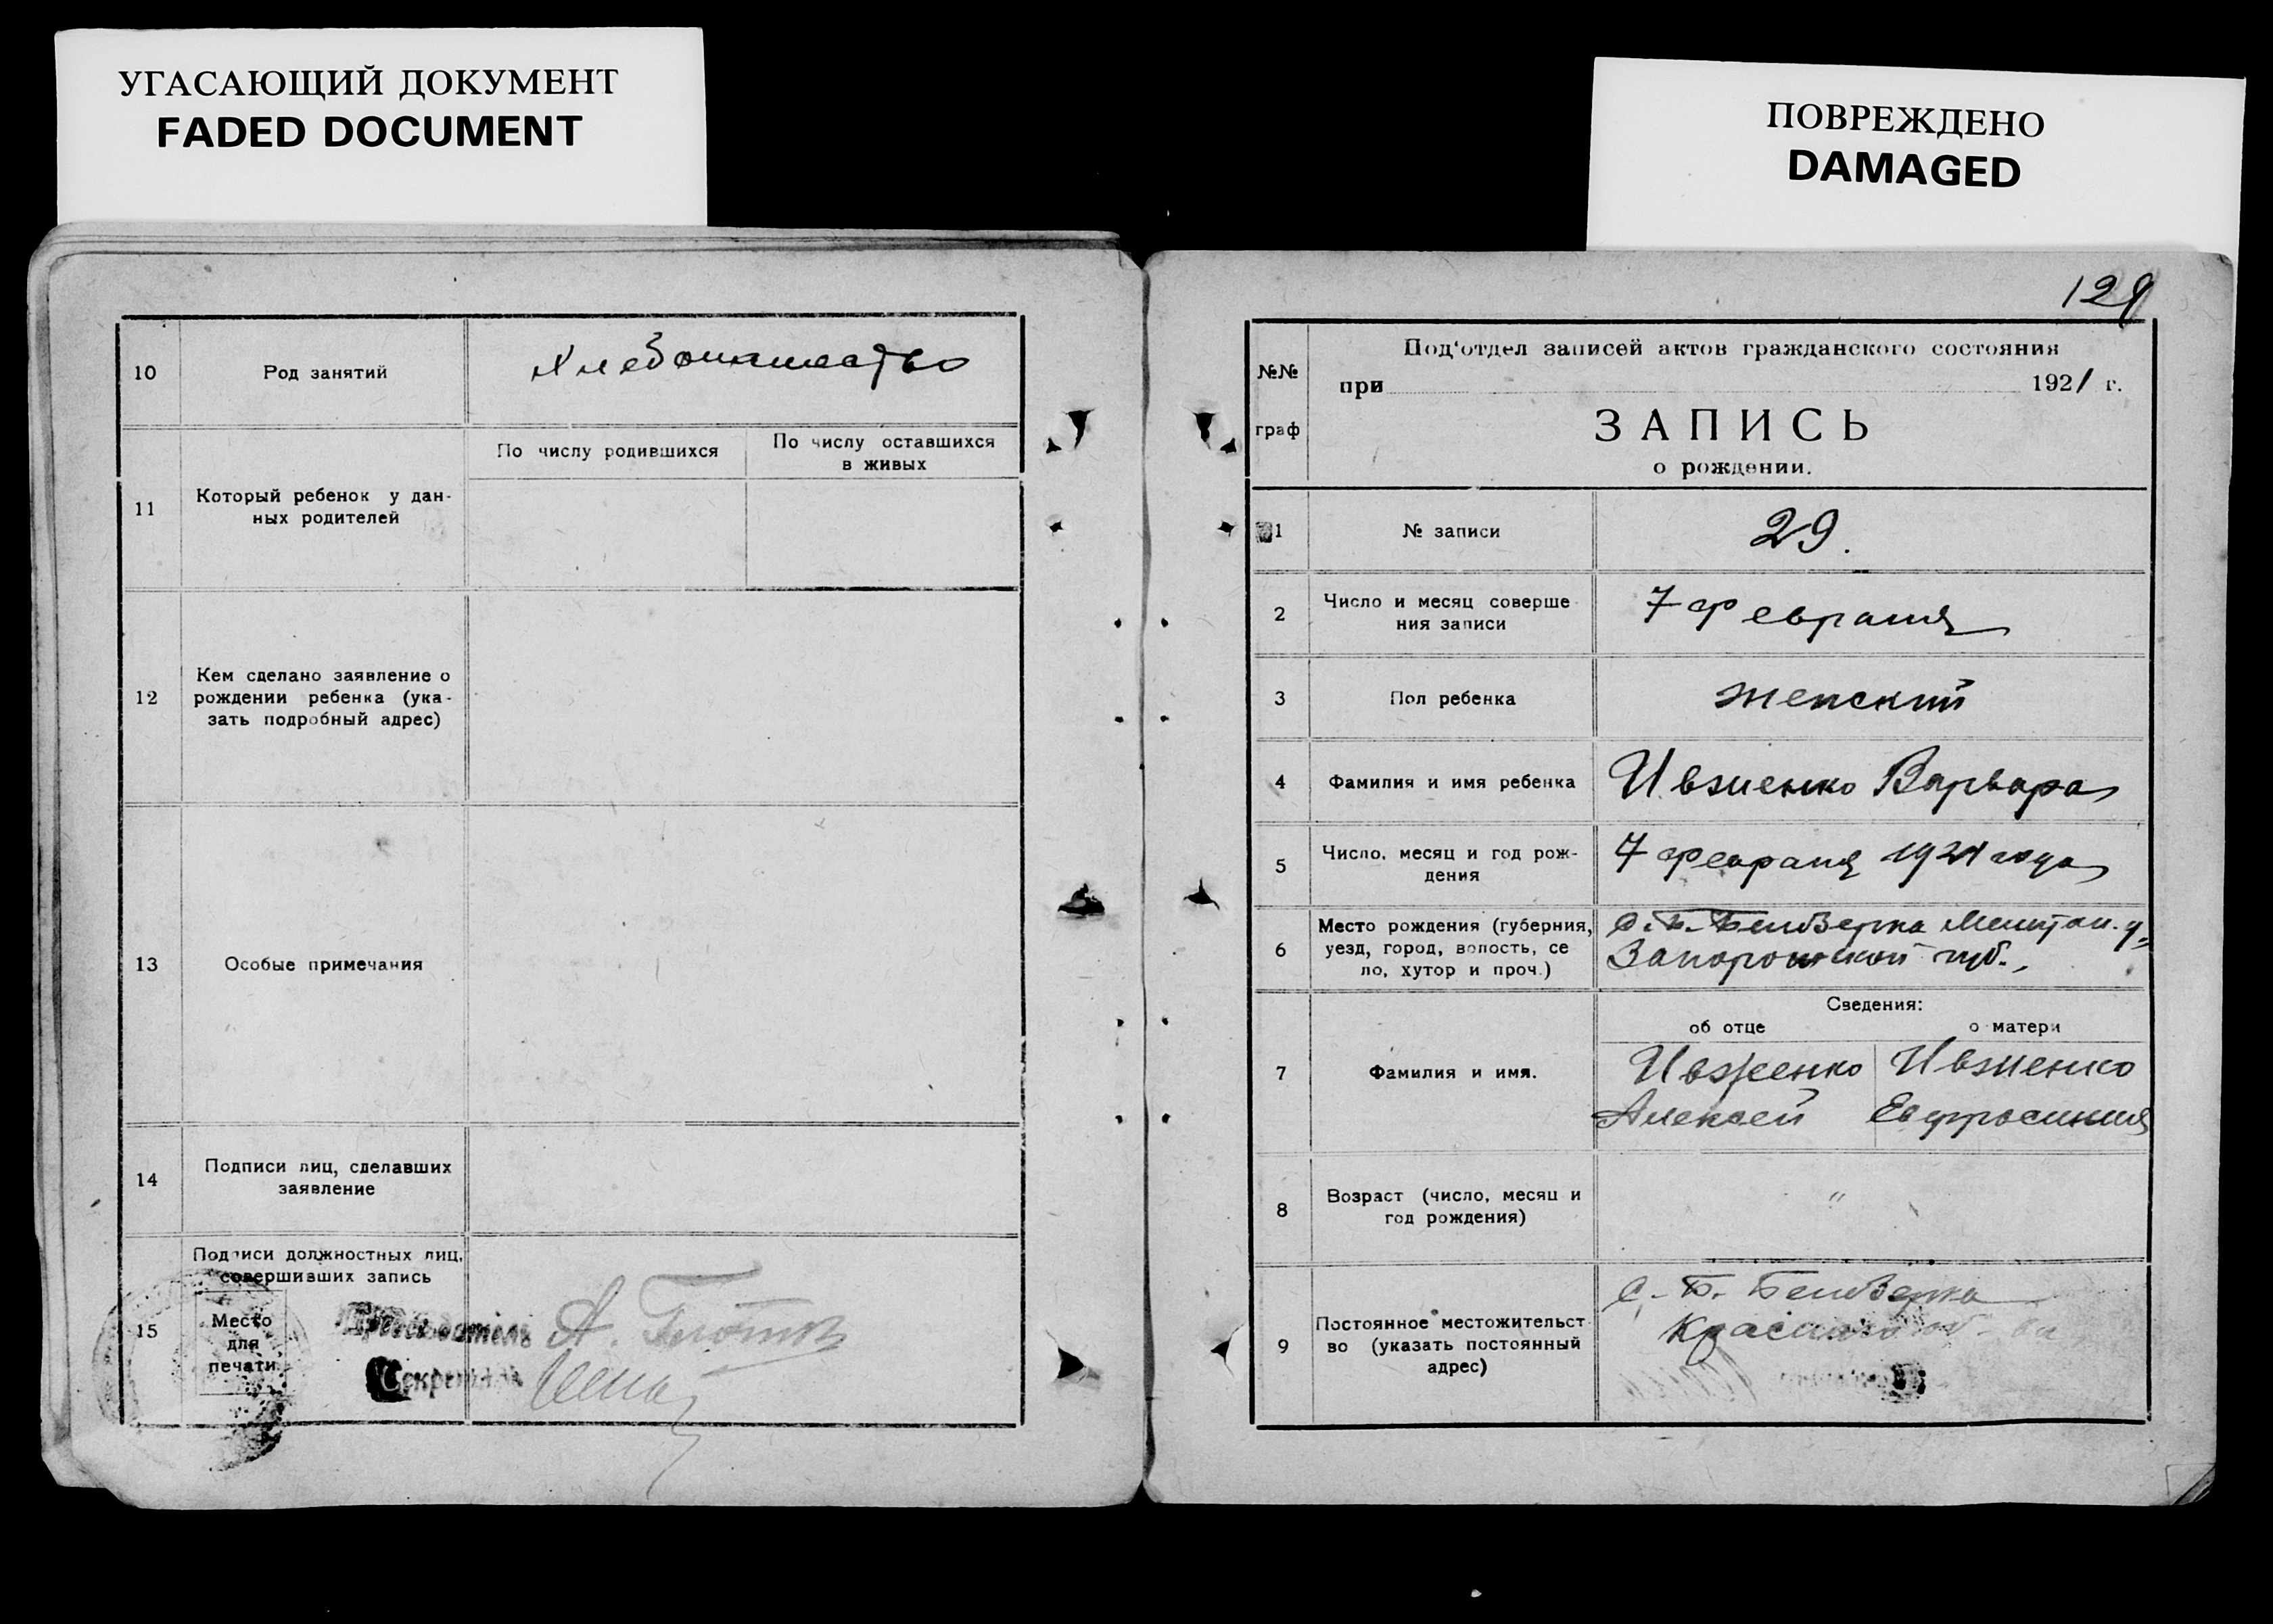 УГАСАЮЩИЙ ДОКУМЕНТ
FADED DOCUMENT
ПОВРЕЖДЕНО
DAMAGED
10
Род занятий
Хлебопашество
11
Который ребенок у дан-
ных родителей
По числу родившихся
По числу оставшихся
в живых
12
Кем сделано заявление о
рождении ребенка (ука-
зать подробный адрес)
13
Особые примечания
14
Подписи лиц, сделавших
заявление
15
Подписи должностных лиц,
совершивших запись
Место
для
печати
Председатель
Секретарь
129
№№
граф
Под'отдел записей актов гражданского состояния
при 1921 г.
ЗАПИСЬ
о рождении.
1
№ записи
29.
2
Число и месяц соверше-
ния записи
7 февраля
3
Пол ребенка
женский
4
Фамилия и имя ребенка
Ивженко Варвара
5
Число, месяц и год рож-
дения
7 февраля 1921 года
6
Место рождения (губерния,
уезд, город, волость, се
ло, хутор и проч.)
с. Б. Белозерка Мелитоп. у.
Запорожской губ.
7
Фамилия и имя.
Сведения:
об отце
о матери
Ивженко
Алексей
Ивженко
Евфросиния
8
Возраст (число, месяц и
год рождения)
"
9
Постоянное местожительст
во (указать постоянный
адрес)
с. Б. Белозерка